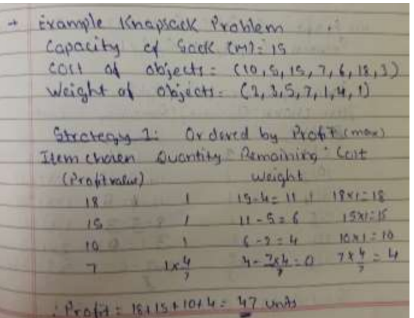 → Example Knapsack Problem
Capacity of Sack (M): 15
Cost of objects: (10, 5, 15, 7, 6, 18, 3)
Weight of objects: (2, 3, 5, 7, 1, 4, 1)
Strategy 1: Ordered by Profit (max)
Item chosen Quantity Remaining Cost
(Profit value) weight
18 1 15-4=11 18x1=18
15 1 11-5=6 15x1=15
10 1 6-2=4 10x1=10
7 1x4/7 4-7x4/7=0 7x4/7=4
∴ Profit = 18+15+10+4= 47 units